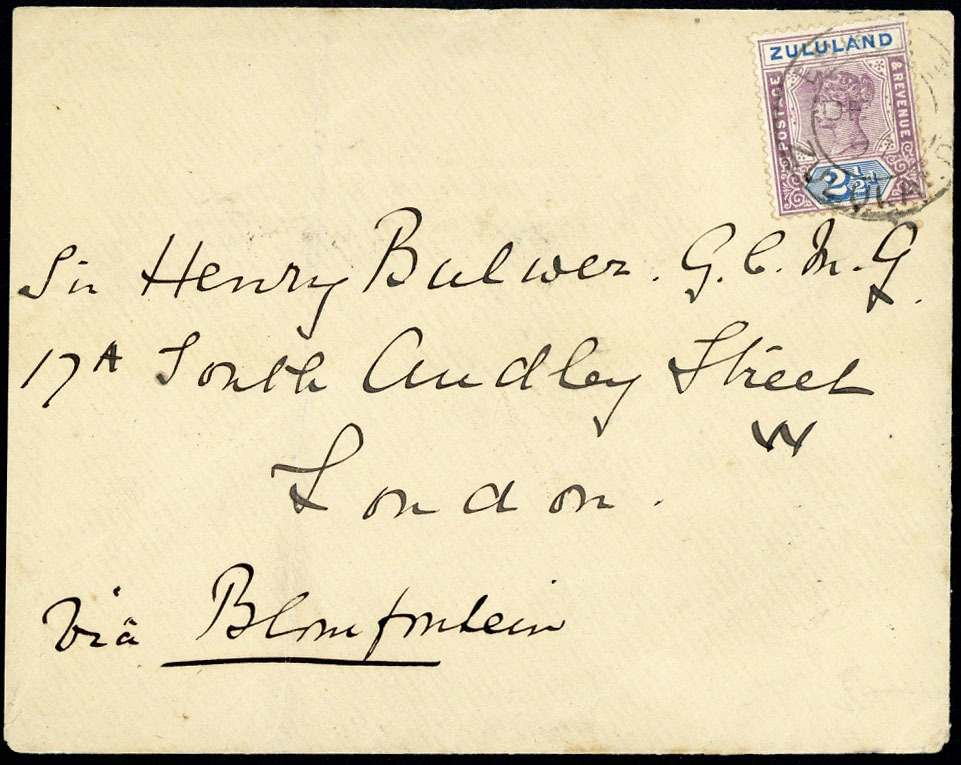 ZULULAND
POSTAGE
& REVENUE
2½d
Sir Henry Bulwer. G.C.M.G.
17A South Audley Street
W
London.
Via Blomfontein